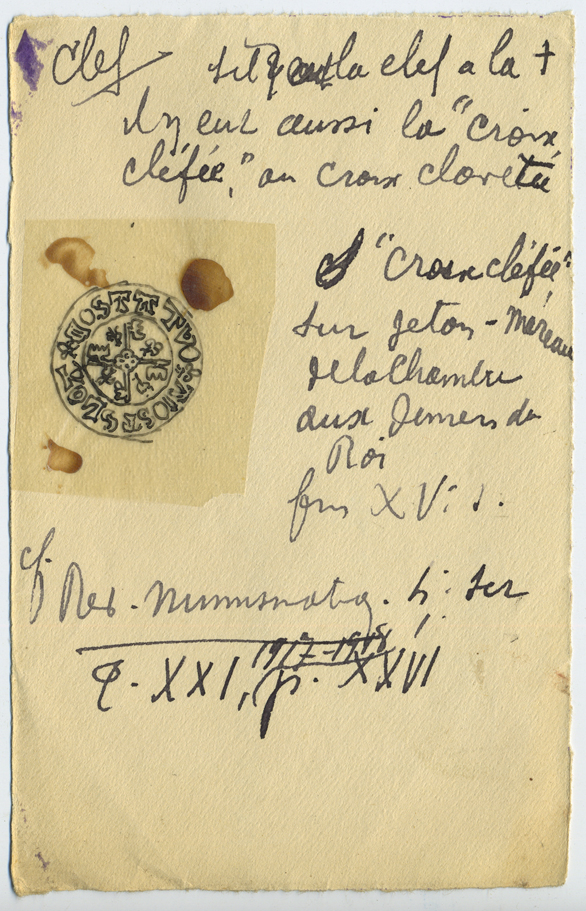 Clef si la clef a la +
il y eut aussi la "croix
cléfée," ou croix clavetée
"Croix cléfée"
sur jeton - méreau
de la Chambre
aux deniers du
Roi
fin XVe s.
cf. Rev. Numismatiq. 4e ser
1917-1918
t. XXI, p. XXVI